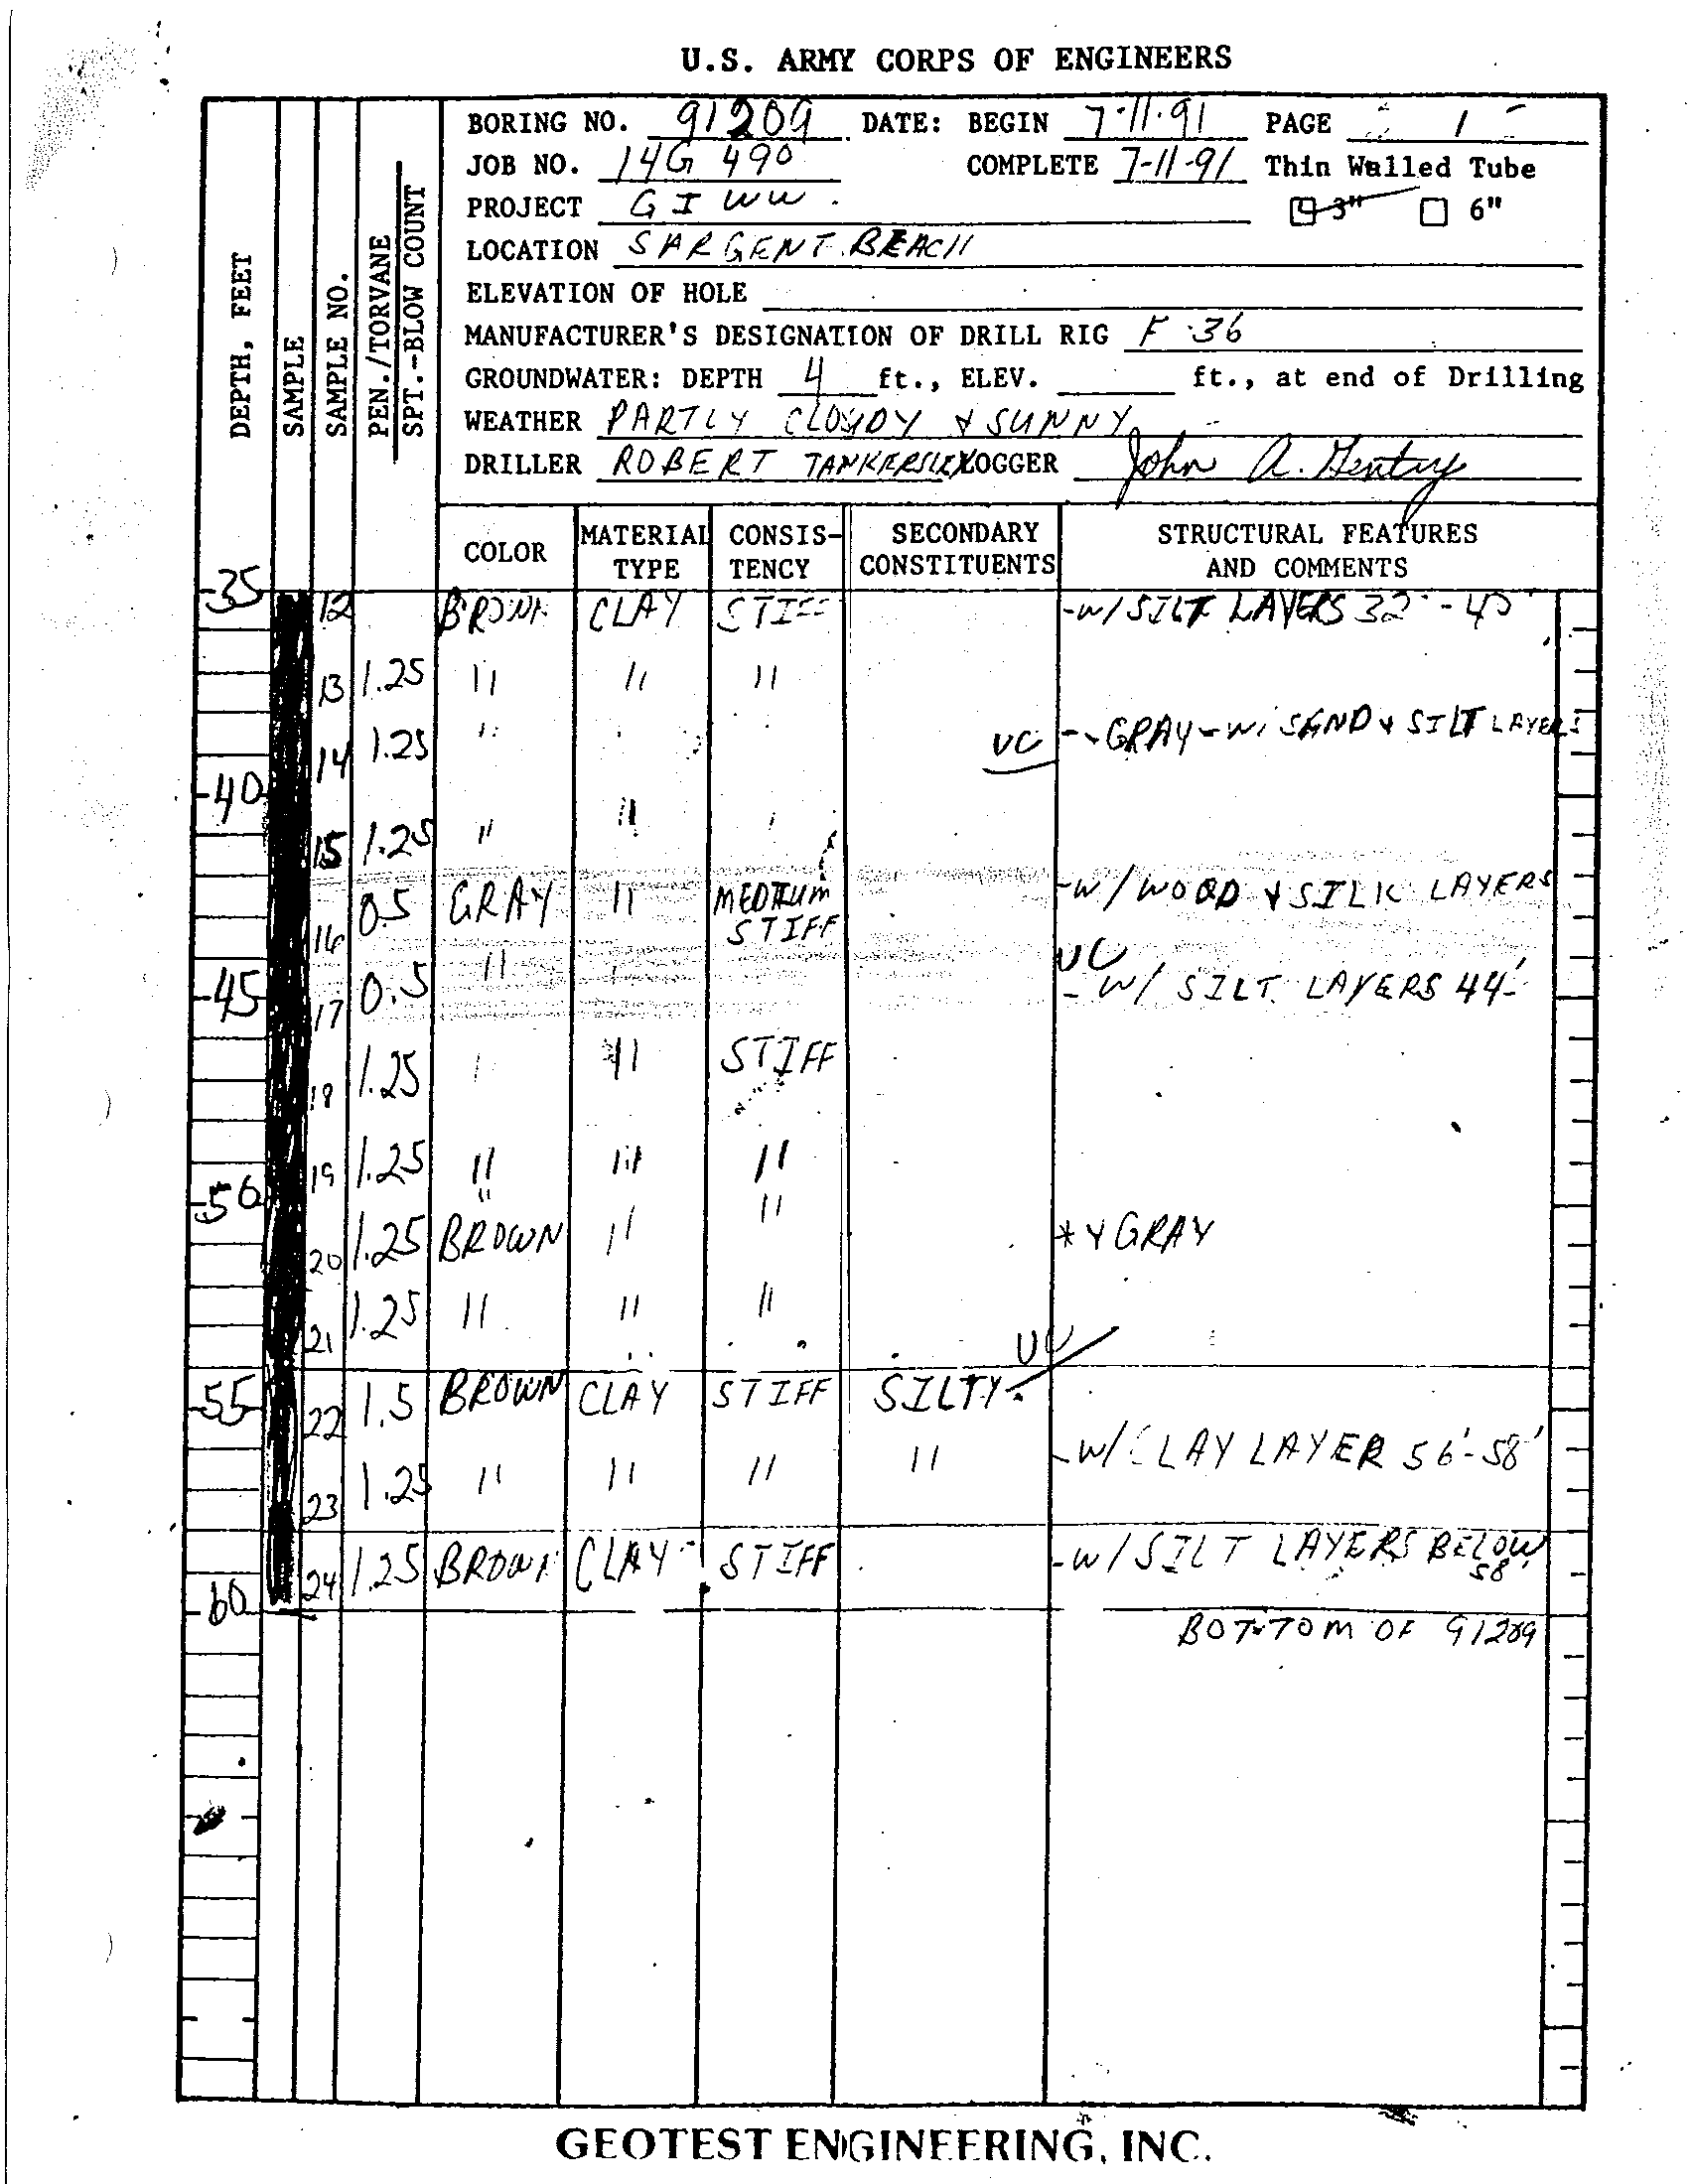 U.S. ARMY CORPS OF ENGINEERS
BORING NO. 91209 DATE: BEGIN 7-11-91 PAGE 1
JOB NO. 14G 490 COMPLETE 7-11-91 Thin Walled Tube
PROJECT GIWW 3" 6"
LOCATION SARGENT BEACH
ELEVATION OF HOLE
MANUFACTURER'S DESIGNATION OF DRILL RIG F-36
GROUNDWATER: DEPTH 4 ft., ELEV. ft., at end of Drilling
WEATHER PARTLY CLOUDY & SUNNY
DRILLER ROBERT TANKERSLEY LOGGER John A. Gentry
DEPTH, FEET
SAMPLE
SAMPLE NO.
PEN./TORVANE
SPT.-BLOW COUNT
COLOR MATERIAL TYPE CONSIS-TENCY SECONDARY CONSTITUENTS STRUCTURAL FEATURES AND COMMENTS
35
12 BROWN CLAY STIFF -W/SILT LAYERS 32'-40
13 1.25 " " "
14 1.25 " UC - GRAY - W/ SAND & SILT LAYERS
40
15 1.25 " "
16 0.5 GRAY " MEDIUM STIFF -W/WOOD & SILK LAYERS
UC
45 17 0.5 " - W/ SILT LAYERS 44'-
18 1.25 " STIFF
19 1.25 " " "
50 " "
20 1.25 BROWN " * & GRAY
21 1.25 " " "
UC
55 22 1.5 BROWN CLAY STIFF SILTY
23 1.25 " " " " -W/CLAY LAYER 56'-58'
24 1.25 BROWN CLAY STIFF -W/SILT LAYERS BELOW 58'
60
BOTTOM OF 91209
GEOTEST ENGINEERING, INC.